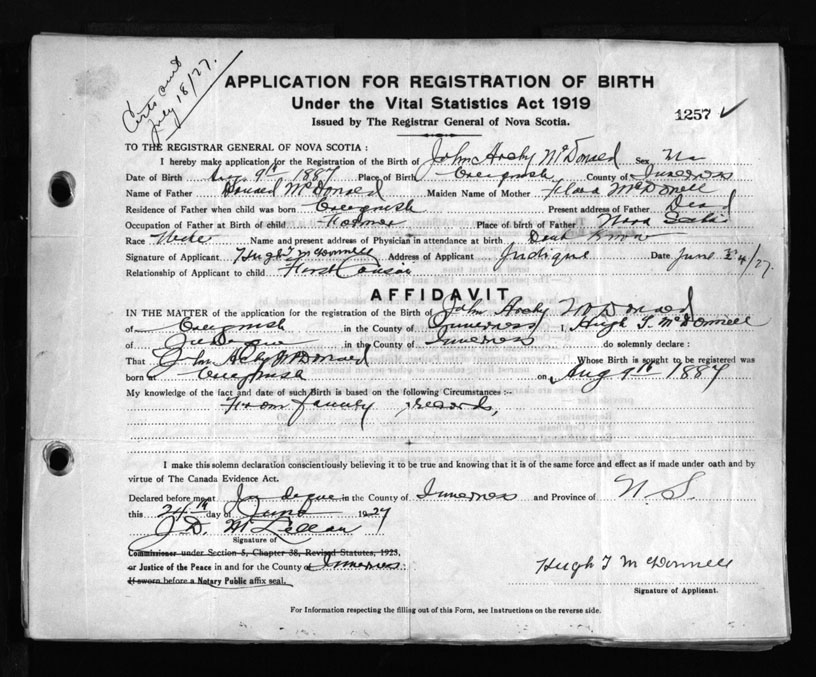 Certs sent
July 18/27.
APPLICATION FOR REGISTRATION OF BIRTH
Under the Vital Statistics Act 1919
Issued by The Registrar General of Nova Scotia.
1257 ✓
TO THE REGISTRAR GENERAL OF NOVA SCOTIA :
I hereby make application for the Registration of the Birth of John Archy McDonald Sex Ma
Date of Birth Aug 9th 1887 Place of Birth Creignish County of Inverness
Name of Father Donald McDonald Maiden Name of Mother Flora McDonell
Residence of Father when child was born Creignish Present address of Father Dead
Occupation of Father at Birth of child Farmer Place of birth of Father Nova Scotia
Race White Name and present address of Physician in attendance at birth Dont Know
Signature of Applicant Hugh J McDonnell Address of Applicant Judique Date June 24/27.
Relationship of Applicant to child First Cousin
AFFIDAVIT
IN THE MATTER of the application for the registration of the Birth of John Archy McDonald
of Creignish in the County of Inverness I, Hugh J. McDonnell
of Judique in the County of Inverness do solemnly declare :
That John Archy McDonald Whose Birth is sought to be registered was
born at Creignish on Aug 9th 1887
My knowledge of the fact and date of such Birth is based on the following Circumstances :-
From family records,
I make this solemn declaration conscientiously believing it to be true and knowing that it is of the same force and effect as if made under oath and by
virtue of The Canada Evidence Act.
Declared before me at Judique in the County of Inverness and Province of N. S.
this 24th day of June 1927
J. D. McLellan
Signature of
Commissioner under Section 5, Chapter 38, Revised Statutes, 1923,
or Justice of the Peace in and for the County of Inverness
If sworn before a Notary Public affix seal.
Hugh J McDonnell
Signature of Applicant.
For Information respecting the filling out of this Form, see Instructions on the reverse side.